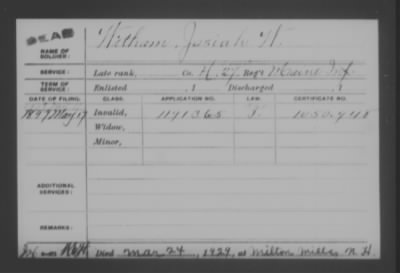 DEAD
NAME OF SOLDIER: Witham, Josiah W.
SERVICE: Late rank, Co. H, 27 Reg't Maine Inf.
TERM OF SERVICE: Enlisted , 1 Discharged , 1
DATE OF FILING. CLASS. APPLICATION NO. LAW. CERTIFICATE NO.
1897 May 17 Invalid, 1191365
Widow,
Minor,
ADDITIONAL SERVICES:
REMARKS:
Died Mar 24, 1929, at Milton Mills, N. H.